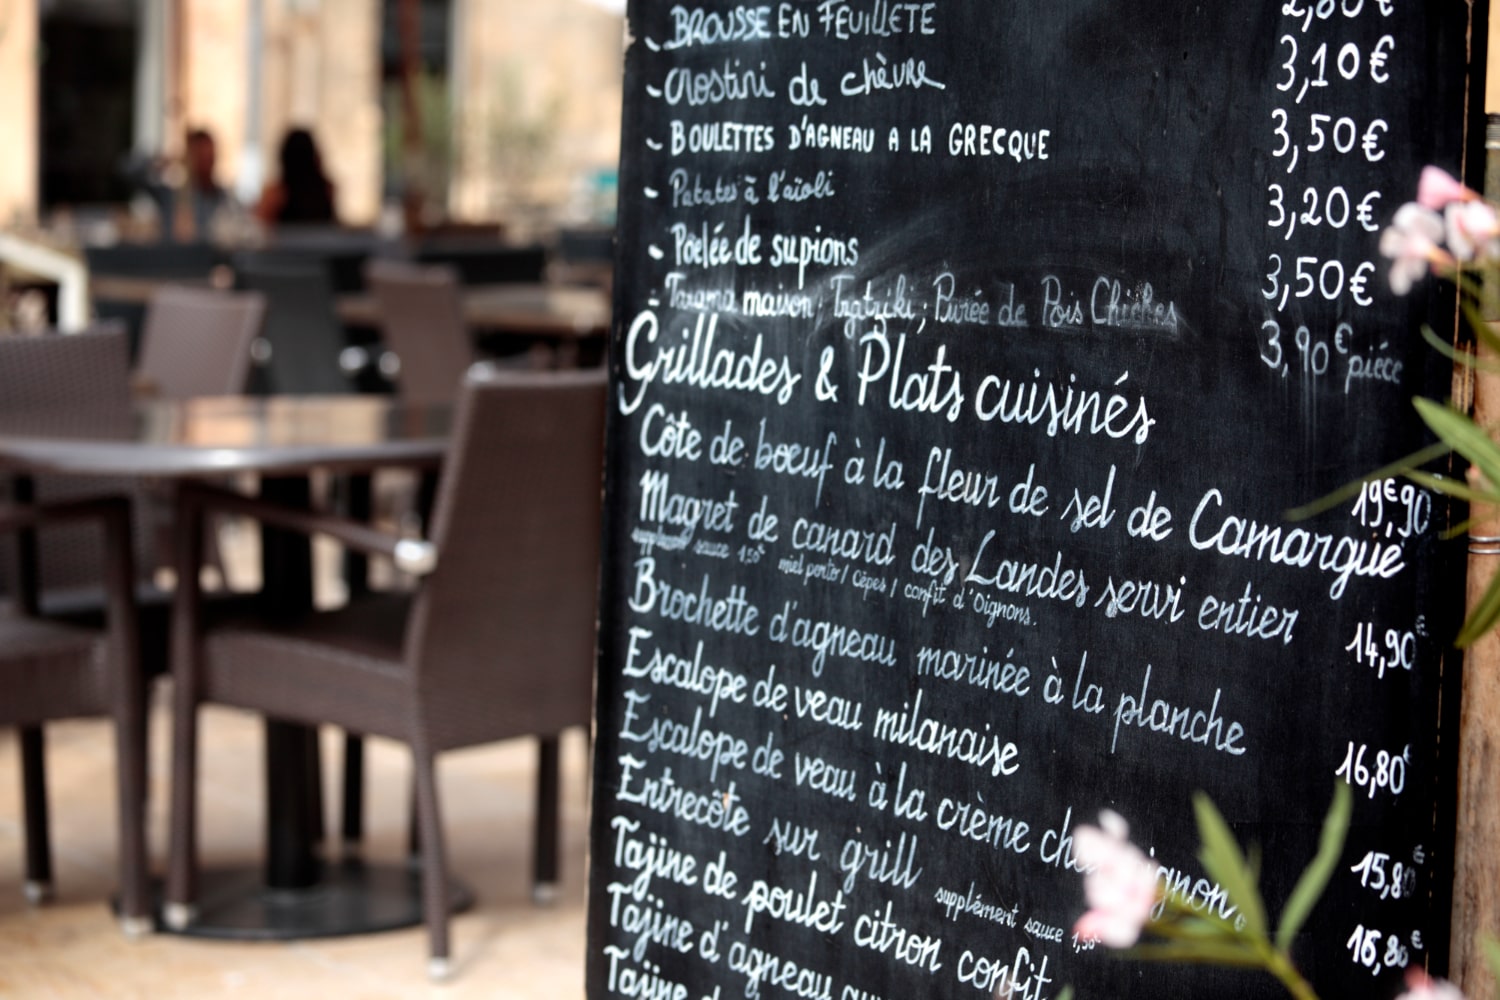 BROUSSE EN FEUILLETÉ
- crostini de chèvre 3,10€
- BOULETTES D'AGNEAU A LA GRECQUE 3,50€
- Patates à l'aïoli 3,20€
- Poêlée de supions 3,50€
- Tarama maison; Tzatziki; Purée de Pois Chiches 3,90€ pièce
Grillades & Plats cuisinés
Côte de boeuf à la fleur de sel de Camargue 19€90
Magret de canard des Landes servi entier 14,90€
supplément sauce 1,50€ miel porto / Cèpes / confit d'Oignons.
Brochette d'agneau marinée à la planche 16,80€
Escalope de veau milanaise 15,8
Escalope de veau à la crème 16,80€
Entrecôte sur grill supplément sauce 1,50€
Tajine de poulet citron confit
Tajine d'agneau
Tajine